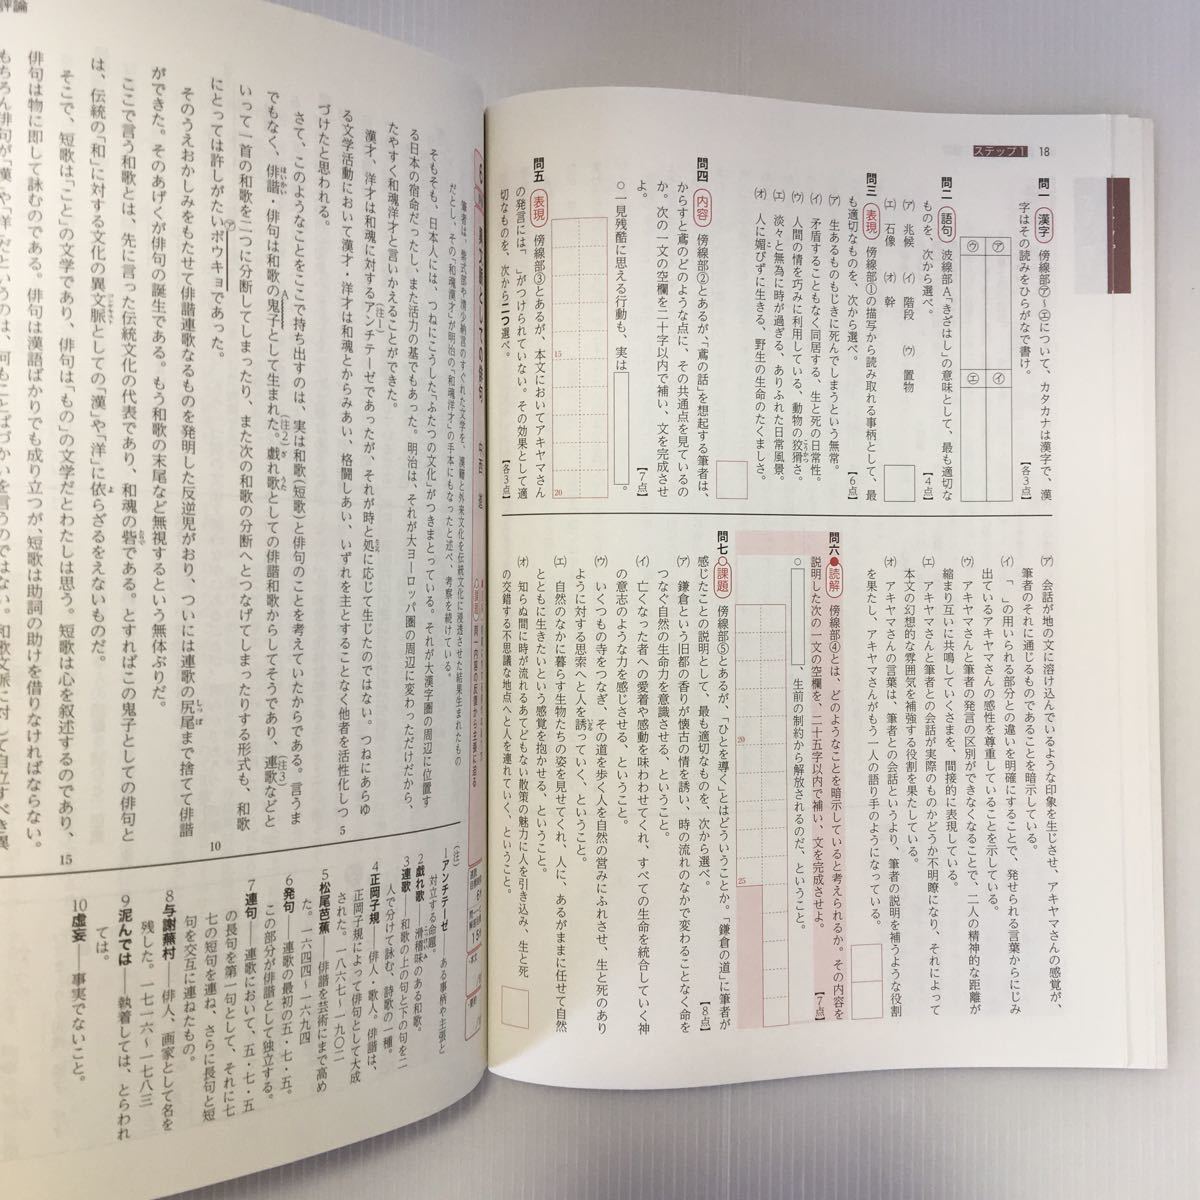 18
ステップ1
問一 漢字 傍線部㋐～㋓について、カタカナは漢字で、漢
字はその読みをひらがなで書け。
【各3点】
㋐
㋑
㋒
㋓
問二 語句 波線部A「きざはし」の意味として、最も適切な
ものを、次から選べ。
【4点】
(ア) 兆候 (イ) 階段 (ウ) 置物
(エ) 石像 (オ) 幹
問三 表現 傍線部①の描写から読み取れる事柄として、最
も適切なものを、次から選べ。
【6点】
(ア) 生あるものもじきに死んでしまうという無常。
(イ) 矛盾することもなく同居する、生と死の日常性。
(ウ) 人間の情を巧みに利用している、動物の狡猾さ。
(エ) 淡々と無為に時が過ぎる、ありふれた日常風景。
(オ) 人に媚びずに生きる、野生の生命のたくましさ。
問四 内容 傍線部②とあるが、「鳶の話」を想起する筆者は、
からすと鳶のどのような点に、その共通点を見ているの
か。次の一文の空欄を二十字以内で補い、文を完成させ
よ。
【7点】
○一見残酷に思える行動も、実は　　　。
15
20
問五 表現 傍線部③とあるが、本文においてアキヤマさん
の発言には「　」がつけられていない。その効果として適
切なものを、次から二つ選べ。
【各3点】
(ア) 会話が地の文に溶け込んでいるような印象を生じさせ、アキヤマさんの感覚が、
筆者のそれに通じるものであることを暗示している。
(イ) 「　」の用いられる部分との違いを明確にすることで、発せられる言葉からにじみ
出ているアキヤマさんの感性を尊重していることを示している。
(ウ) アキヤマさんと筆者の発言の区別ができなくなることで、二人の精神的な距離が
縮まり互いに共鳴していくさまを、間接的に表現している。
(エ) アキヤマさんと筆者との会話が実際のものかどうか不明瞭になり、それによって
本文の幻想的な雰囲気を補強する役割を果たしている。
(オ) アキヤマさんの言葉は、筆者との会話というより、筆者の説明を補うような役割
を果たし、アキヤマさんがもう一人の語り手のようになっている。
問六 ●読解 傍線部④とは、どのようなことを暗示していると考えられるか。その内容を
説明した次の一文の空欄を、二十五字以内で補い、文を完成させよ。
【7点】
○　　　、生前の制約から解放されるのだ、ということ。
20
25
問七 ○課題 傍線部⑤とあるが、「ひとを導く」とはどういうことか。「鎌倉の道」に筆者が
感じたことの説明として、最も適切なものを、次から選べ。
【8点】
(ア) 鎌倉という旧都の香りが懐古の情を誘い、時の流れのなかで変わることなく命を
つなぐ自然の生命力を意識させる、ということ。
(イ) 亡くなった者への愛着や感動を味わわせてくれ、すべての生命を統合していく神
の意志のような力を感じさせる、ということ。
(ウ) いくつもの寺をつなぎ、その道を歩く人を自然の営みにふれさせ、生と死のあり
ように対する思索へと人を誘っていく、ということ。
(エ) 自然のなかに暮らす生物たちの姿を見せてくれ、人に、あるがままに任せて自然
とともに生きたいという感覚を抱かせる、ということ。
(オ) 知らぬ間に時が流れるあてどもない散策の魅力に人を引き込み、生と死
の交錯する不思議な地点へと人を連れていく、ということ。
評論
だとし、その「和魂漢才」が明治の「和魂洋才」の手本にもなったと述べ、考察を続けている。
そもそも、日本人には、つねにこうした「ふたつの文化」がつきまとっている。それが大漢字圏の周辺に位置す
る日本の宿命だったし、また活力の基でもあった。明治は、それが大ヨーロッパ圏の周辺に変わっただけだから、
たやすく和魂洋才と言いかえることができた。
漢才、洋才は和魂に対するアンチテーゼであったが、それが時と処に応じて生じたのではない。つねにあらゆ
る文学活動において漢才・洋才は和魂とからみあい、格闘しあい、いずれを主とすることなく他者を活性化しつ
づけたと思われる。
さて、このようなことをここで持ち出すのは、実は和歌(短歌)と俳句のことを考えていたからである。言うま
でもなく、俳諧・俳句は和歌の鬼子として生まれた。戯れ歌としての俳諧和歌からしてそうであり、連歌などと
いって一首の和歌を二つに分断してしまったり、また次の和歌の分断へとつなげてしまったりする形式も、和歌
にとっては許しがたいボウキョであった。
そのうえおかしみをもたせて俳諧連歌なるものを発明した反逆児がおり、ついには連歌の尻尾まで捨てて俳諧
ができた。そのあげくが俳句の誕生である。もう和歌の末尾など無視するという無体ぶりだ。
ここで言う和歌とは、先に言った伝統文化の代表であり、和魂の砦である。とすればこの鬼子としての俳句と
は、伝統の「和」に対する文化の異文脈としての「漢」や「洋」に依らざるをえないものだ。
そこで、短歌は「こと」の文学であり、俳句は「もの」の文学だとわたしは思う。短歌は心を叙述するのであり、
俳句は物に即して詠むのである。俳句は漢語ばかりでも成り立つが、短歌は助詞の助けを借りなければならない。
5
10
15
(注)
1アンチテーゼ――ある事柄や主張と
対立する命題。
2戯れ歌――滑稽味のある和歌。
3連歌――和歌の上の句と下の句を二
人で分けて詠む、詩歌の一種。
4正岡子規――俳人・歌人。俳諧は、
正岡子規によって俳句として大成
された。一八六七～一九〇二
5松尾芭蕉――俳諧を芸術にまで高め
た。一六四四～一六九四
6発句――連歌の最初の五・七・五。
この部分が俳諧として独立する。
7連句――連歌において、五・七・五
の長句を第一句として、それに七
七の短句を連ね、さらに長句と短
句を交互に連ねたもの。
8与謝蕪村――俳人、画家として名を
残した。一七一六～一七八三
9泥んでは――執着しては、とらわれ
ては。
10虚妄――事実でないこと。